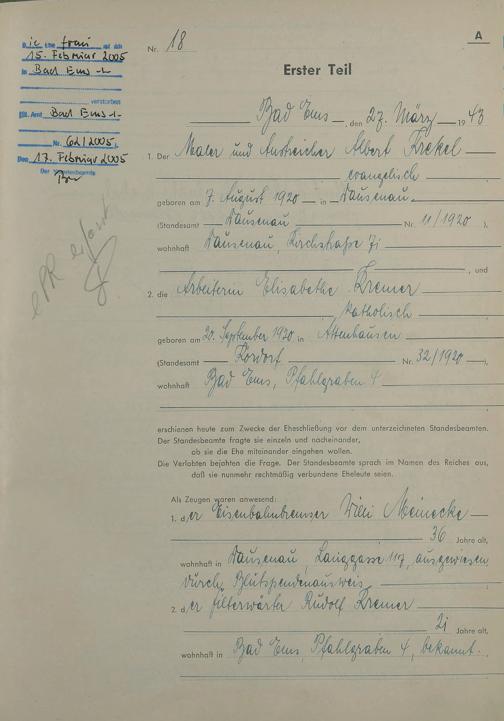 A
Die Ehefrau ist am
15. Februar 2005
in Bad Ems -1-
verstorben
Std. Amt Bad Ems -1-
Nr. 62/2005.
Den 17. Februar 2005
Der Standesbeamte
ePR erfasst
Nr. 18
Erster Teil
Bad Ems, den 27. März 1943
1. Der Maler und Anstreicher Albert Krekel
evangelisch
geboren am 7. August 1920 in Dausenau
(Standesamt Dausenau Nr. 11/1920),
wohnhaft Dausenau, Kirchstraße 71
, und
2. die Arbeiterin Elisabethe Kremer
katholisch
geboren am 20. September 1920 in Attenhausen
(Standesamt Kördorf Nr. 32/1920),
wohnhaft Bad Ems, Pfahlgraben 4
erschienen heute zum Zwecke der Eheschließung vor dem unterzeichneten Standesbeamten.
Der Standesbeamte fragte sie einzeln und nacheinander,
ob sie die Ehe miteinander eingehen wollen.
Die Verlobten bejahten die Frage. Der Standesbeamte sprach im Namen des Reiches aus,
daß sie nunmehr rechtmäßig verbundene Eheleute seien.
Als Zeugen waren anwesend:
1. der Eisenbahnbremser Willi Meinecke
36 Jahre alt,
wohnhaft in Dausenau, Langgasse 117, ausgewiesen
durch Blutspendenausweis
2. der Filterwärter Rudolf Kremer
21 Jahre alt,
wohnhaft in Bad Ems, Pfahlgraben 4, bekannt.